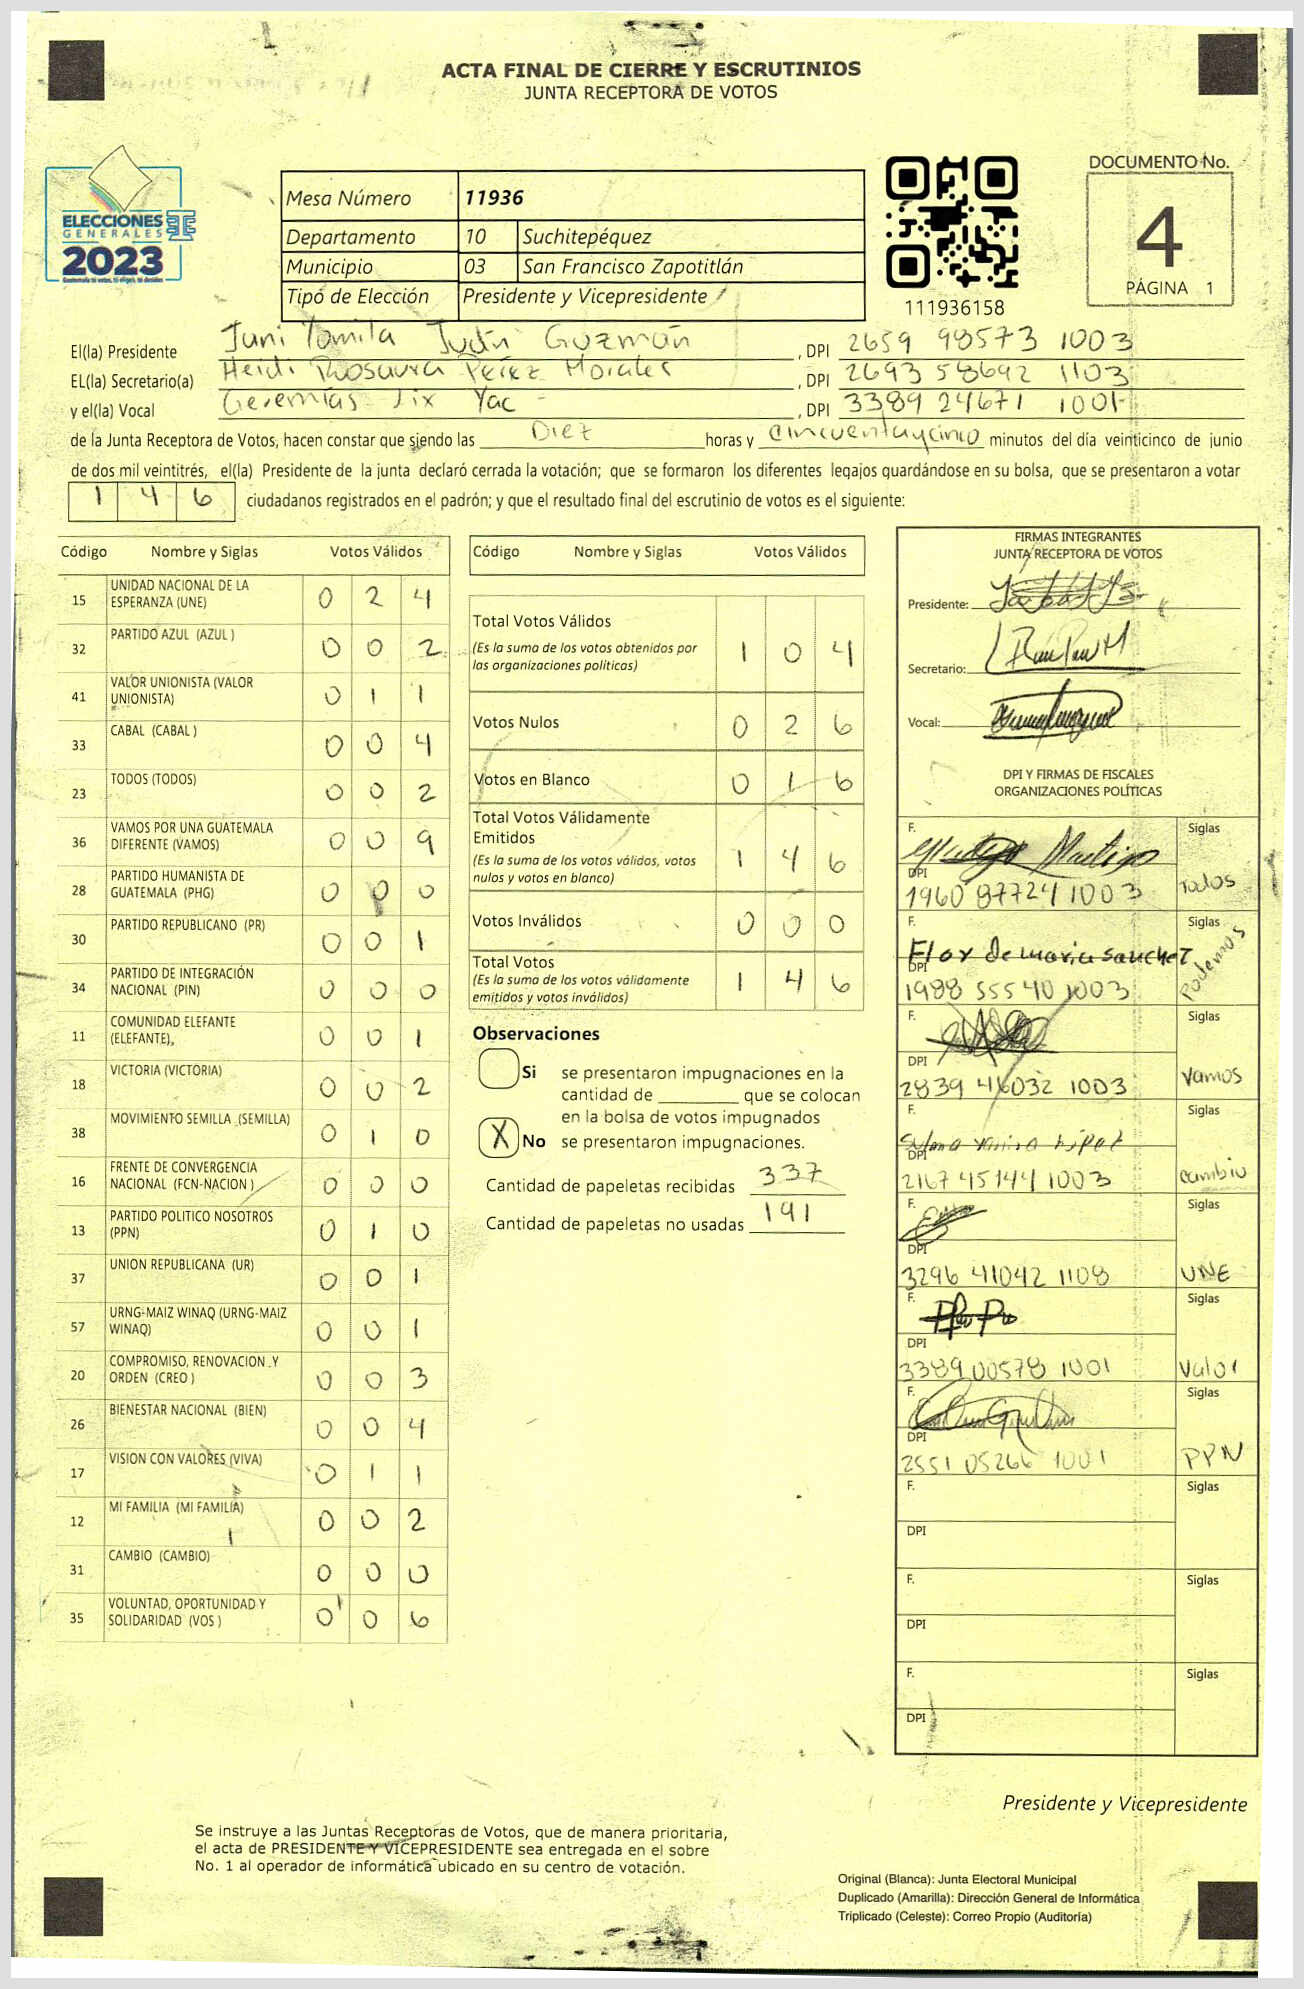 ACTA FINAL DE CIERRE Y ESCRUTINIOS
JUNTA RECEPTORA DE VOTOS
ELECCIONES
GENERALES
2023
Mesa Número 11936
Departamento 10 Suchitepéquez
Municipio 03 San Francisco Zapotitlán
Tipó de Elección Presidente y Vicepresidente
111936158
DOCUMENTO No.
4
PÁGINA 1
El(la) Presidente Guzmán , DPI 2659 98573 1003
EL(la) Secretario(a) Heidi Rosaura Pérez Morales , DPI 2693 58692 1103
y el(la) Vocal Geremías Yac , DPI 3389 24671 1001
de la Junta Receptora de Votos, hacen constar que siendo las Diez horas y cincuentaycinco minutos del día veinticinco de junio
de dos mil veintitrés, el(la) Presidente de la junta declaró cerrada la votación; que se formaron los diferentes legajos guardándose en su bolsa, que se presentaron a votar
1 4 6 ciudadanos registrados en el padrón; y que el resultado final del escrutinio de votos es el siguiente:
Código Nombre y Siglas Votos Válidos
15 UNIDAD NACIONAL DE LA ESPERANZA (UNE) 0 2 4
32 PARTIDO AZUL (AZUL ) 0 0 2
41 VALOR UNIONISTA (VALOR UNIONISTA) 0 1 1
33 CABAL (CABAL ) 0 0 4
23 TODOS (TODOS) 0 0 2
36 VAMOS POR UNA GUATEMALA DIFERENTE (VAMOS) 0 0 9
28 PARTIDO HUMANISTA DE GUATEMALA (PHG) 0 0 0
30 PARTIDO REPUBLICANO (PR) 0 0 1
34 PARTIDO DE INTEGRACIÓN NACIONAL (PIN) 0 0 0
11 COMUNIDAD ELEFANTE (ELEFANTE), 0 0 1
18 VICTORIA (VICTORIA) 0 0 2
38 MOVIMIENTO SEMILLA (SEMILLA) 0 1 0
16 FRENTE DE CONVERGENCIA NACIONAL (FCN-NACION ) 0 0 0
13 PARTIDO POLITICO NOSOTROS (PPN) 0 1 0
37 UNION REPUBLICANA (UR) 0 0 1
57 URNG-MAIZ WINAQ (URNG-MAIZ WINAQ) 0 0 1
20 COMPROMISO, RENOVACION Y ORDEN (CREO ) 0 0 3
26 BIENESTAR NACIONAL (BIEN) 0 0 4
17 VISION CON VALORES (VIVA) 0 1 1
12 MI FAMILIA (MI FAMILIA) 0 0 2
31 CAMBIO (CAMBIO) 0 0 0
35 VOLUNTAD, OPORTUNIDAD Y SOLIDARIDAD (VOS ) 0 0 6
Código Nombre y Siglas Votos Válidos
Total Votos Válidos 1 0 4
(Es la suma de los votos obtenidos por
las organizaciones políticas)
Votos Nulos 0 2 6
Votos en Blanco 0 1 6
Total Votos Válidamente
Emitidos 1 4 6
(Es la suma de los votos válidos, votos
nulos y votos en blanco)
Votos Inválidos 0 0 0
Total Votos 1 4 6
(Es la suma de los votos válidamente
emitidos y votos inválidos)
Observaciones
Si se presentaron impugnaciones en la
cantidad de ________ que se colocan
en la bolsa de votos impugnados
X No se presentaron impugnaciones.
Cantidad de papeletas recibidas 337
Cantidad de papeletas no usadas 191
FIRMAS INTEGRANTES
JUNTA RECEPTORA DE VOTOS
Presidente:
Secretario:
Vocal:
DPI Y FIRMAS DE FISCALES
ORGANIZACIONES POLÍTICAS
F. Siglas
DPI
1960 87724 1003 Todos
F. Flor de maria sanchez Siglas
DPI
1988 55540 1003 Podemos
F. Siglas
DPI
2839 46032 1003 Vamos
F. Siglas
DPI
2167 45144 1003 cambio
F. Siglas
DPI
3296 41042 1108 UNE
F. Siglas
DPI
3389 00578 1001 Valor
F. Siglas
DPI
2551 05266 1001 PPN
F. Siglas
DPI
F. Siglas
DPI
F. Siglas
DPI
Presidente y Vicepresidente
Se instruye a las Juntas Receptoras de Votos, que de manera prioritaria,
el acta de PRESIDENTE Y VICEPRESIDENTE sea entregada en el sobre
No. 1 al operador de informática ubicado en su centro de votación.
Original (Blanca): Junta Electoral Municipal
Duplicado (Amarilla): Dirección General de Informática
Triplicado (Celeste): Correo Propio (Auditoría)